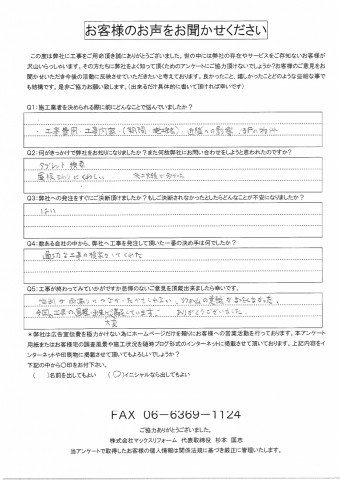 お客様のお声をお聞かせください
この度は弊社に工事をご用命頂き誠にありがとうございました。世の中には弊社の存在やサービスをご存知ないお客様が
沢山いらっしゃいます。その方たちに弊社をよく知って頂くためのアンケートにご協力頂けないでしょうか?お客様のご意見をお
聞かせいただき今後の活動に反映させていただきたいと考えております。良かったこと、嬉しかったことどのような些細な事で
も結構です。是非ご協力お願い致します。(出来るだけ具体的に書いて頂ければ幸いです)
Q1:施工業者を決められる際に前にどんなことで悩んでいましたか?
・工事費用・工事内容(期間・
Q2:何がきっかけで弊社をお知りになりましたか?また何故弊社にお問い合わせをしようと思われたのですか?
タブレット 検索
Q3:弊社への発注をすぐにご決断頂けましたか?もしご決断されなかったとしたらどんなことが不安になりましたか?
はい
Q4:数ある会社の中から、弊社へ工事を発注して頂いた一番の決め手は何でしたか?
適切な工事の提案をしてくれた
Q5:工事が終わってみていかがですか忌憚のないご意見を頂戴出来ましたら幸いです。
ありがとうございました。
大変
*弊社は広告宣伝費を極力かけない為にホームページだけを頼りにお客様への営業活動を行っております。本アンケート
用紙またはお客様宅の調査風景や施工状況を随時ブログ形式のインターネットに掲載させて頂いております。上記内容をイ
ンターネットや印刷物に掲載させて頂いてもよろしいでしょうか?
下記の中から○印をお付下さい。
( )名前を出してもよい (○)イニシャルなら出してもよい
FAX 06-6369-1124
ご協力ありがとうございました。
株式会社マックスリフォーム 代表取締役 杉本 匡志
当アンケートで取得したお客様の個人情報は関係法規に基づき厳正に管理いたします。